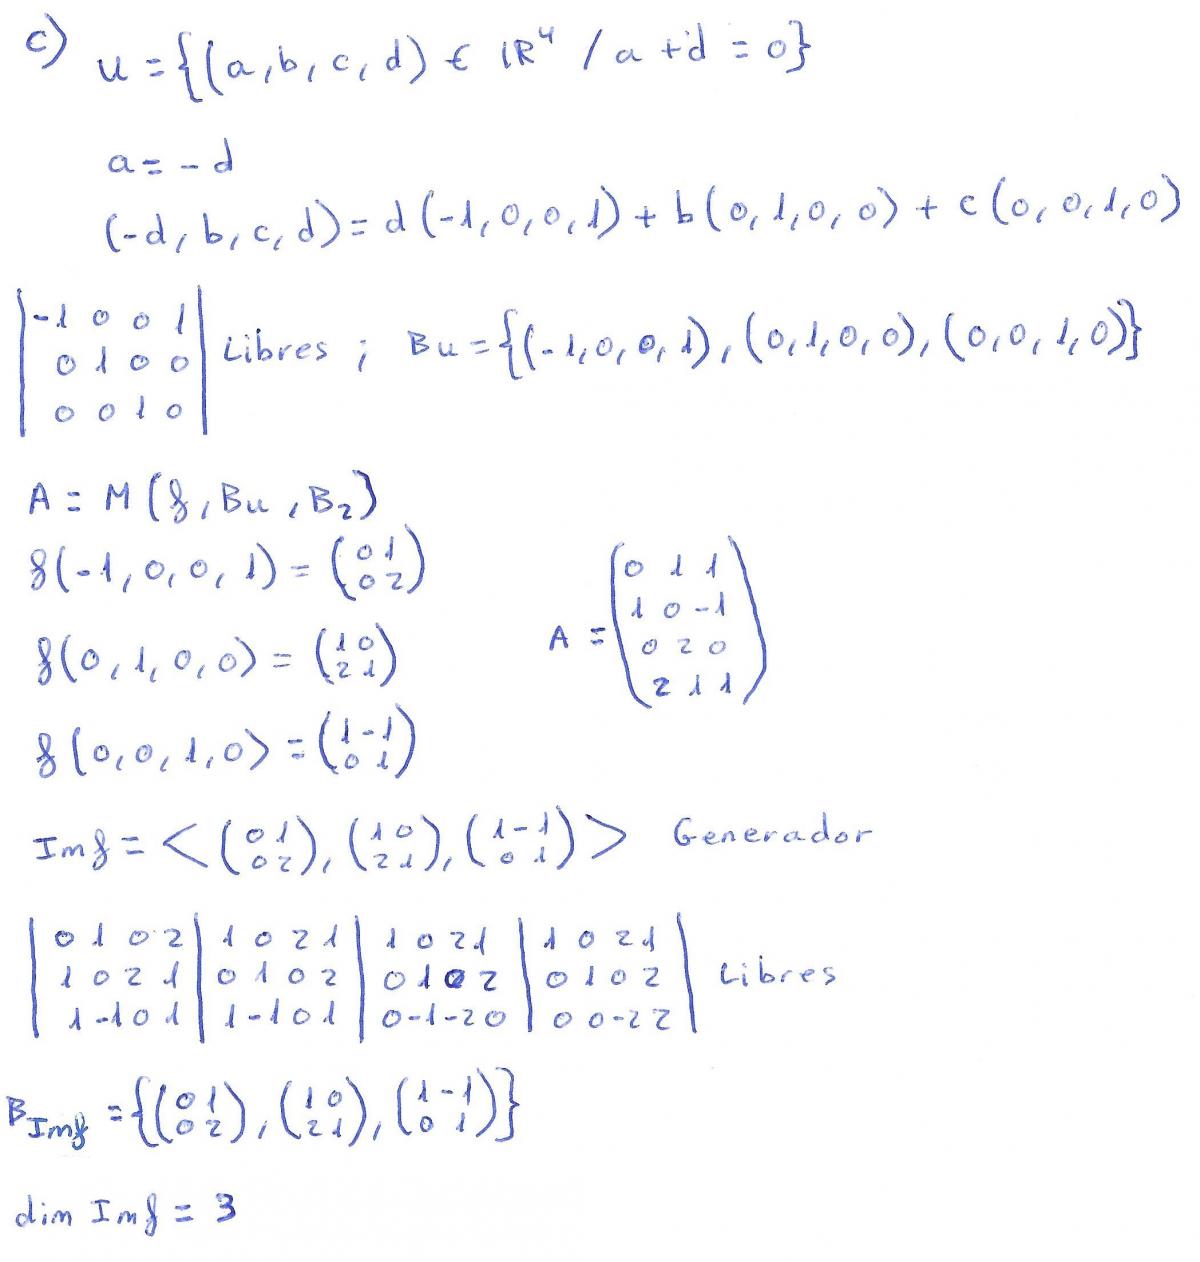 c) U = {(a, b, c, d) ∈ IR⁴ / a + d = 0}
a = - d
(-d, b, c, d) = d (-1, 0, 0, 1) + b (0, 1, 0, 0) + c (0, 0, 1, 0)
| -1 0 0 1 |
| 0 1 0 0 | Libres ; Bu = {(-1, 0, 0, 1), (0, 1, 0, 0), (0, 0, 1, 0)}
| 0 0 1 0 |
A = M (f, Bu, B₂)
f(-1, 0, 0, 1) = (0 1 / 0 2)
f(0, 1, 0, 0) = (1 0 / 2 1)
f(0, 0, 1, 0) = (1 -1 / 0 1)
A = (0 1 1 / 1 0 -1 / 0 2 0 / 2 1 1)
Imf = < (0 1 / 0 2), (1 0 / 2 1), (1 -1 / 0 1) > Generador
| 0 1 0 2 | 1 0 2 1 | 1 0 2 1 | 1 0 2 1 |
| 1 0 2 1 | 0 1 0 2 | 0 1 0 2 | 0 1 0 2 | Libres
| 1 -1 0 1 | 1 -1 0 1 | 0 -1 -2 0 | 0 0 -2 2 |
B Imf = {(0 1 / 0 2), (1 0 / 2 1), (1 -1 / 0 1)}
dim Imf = 3